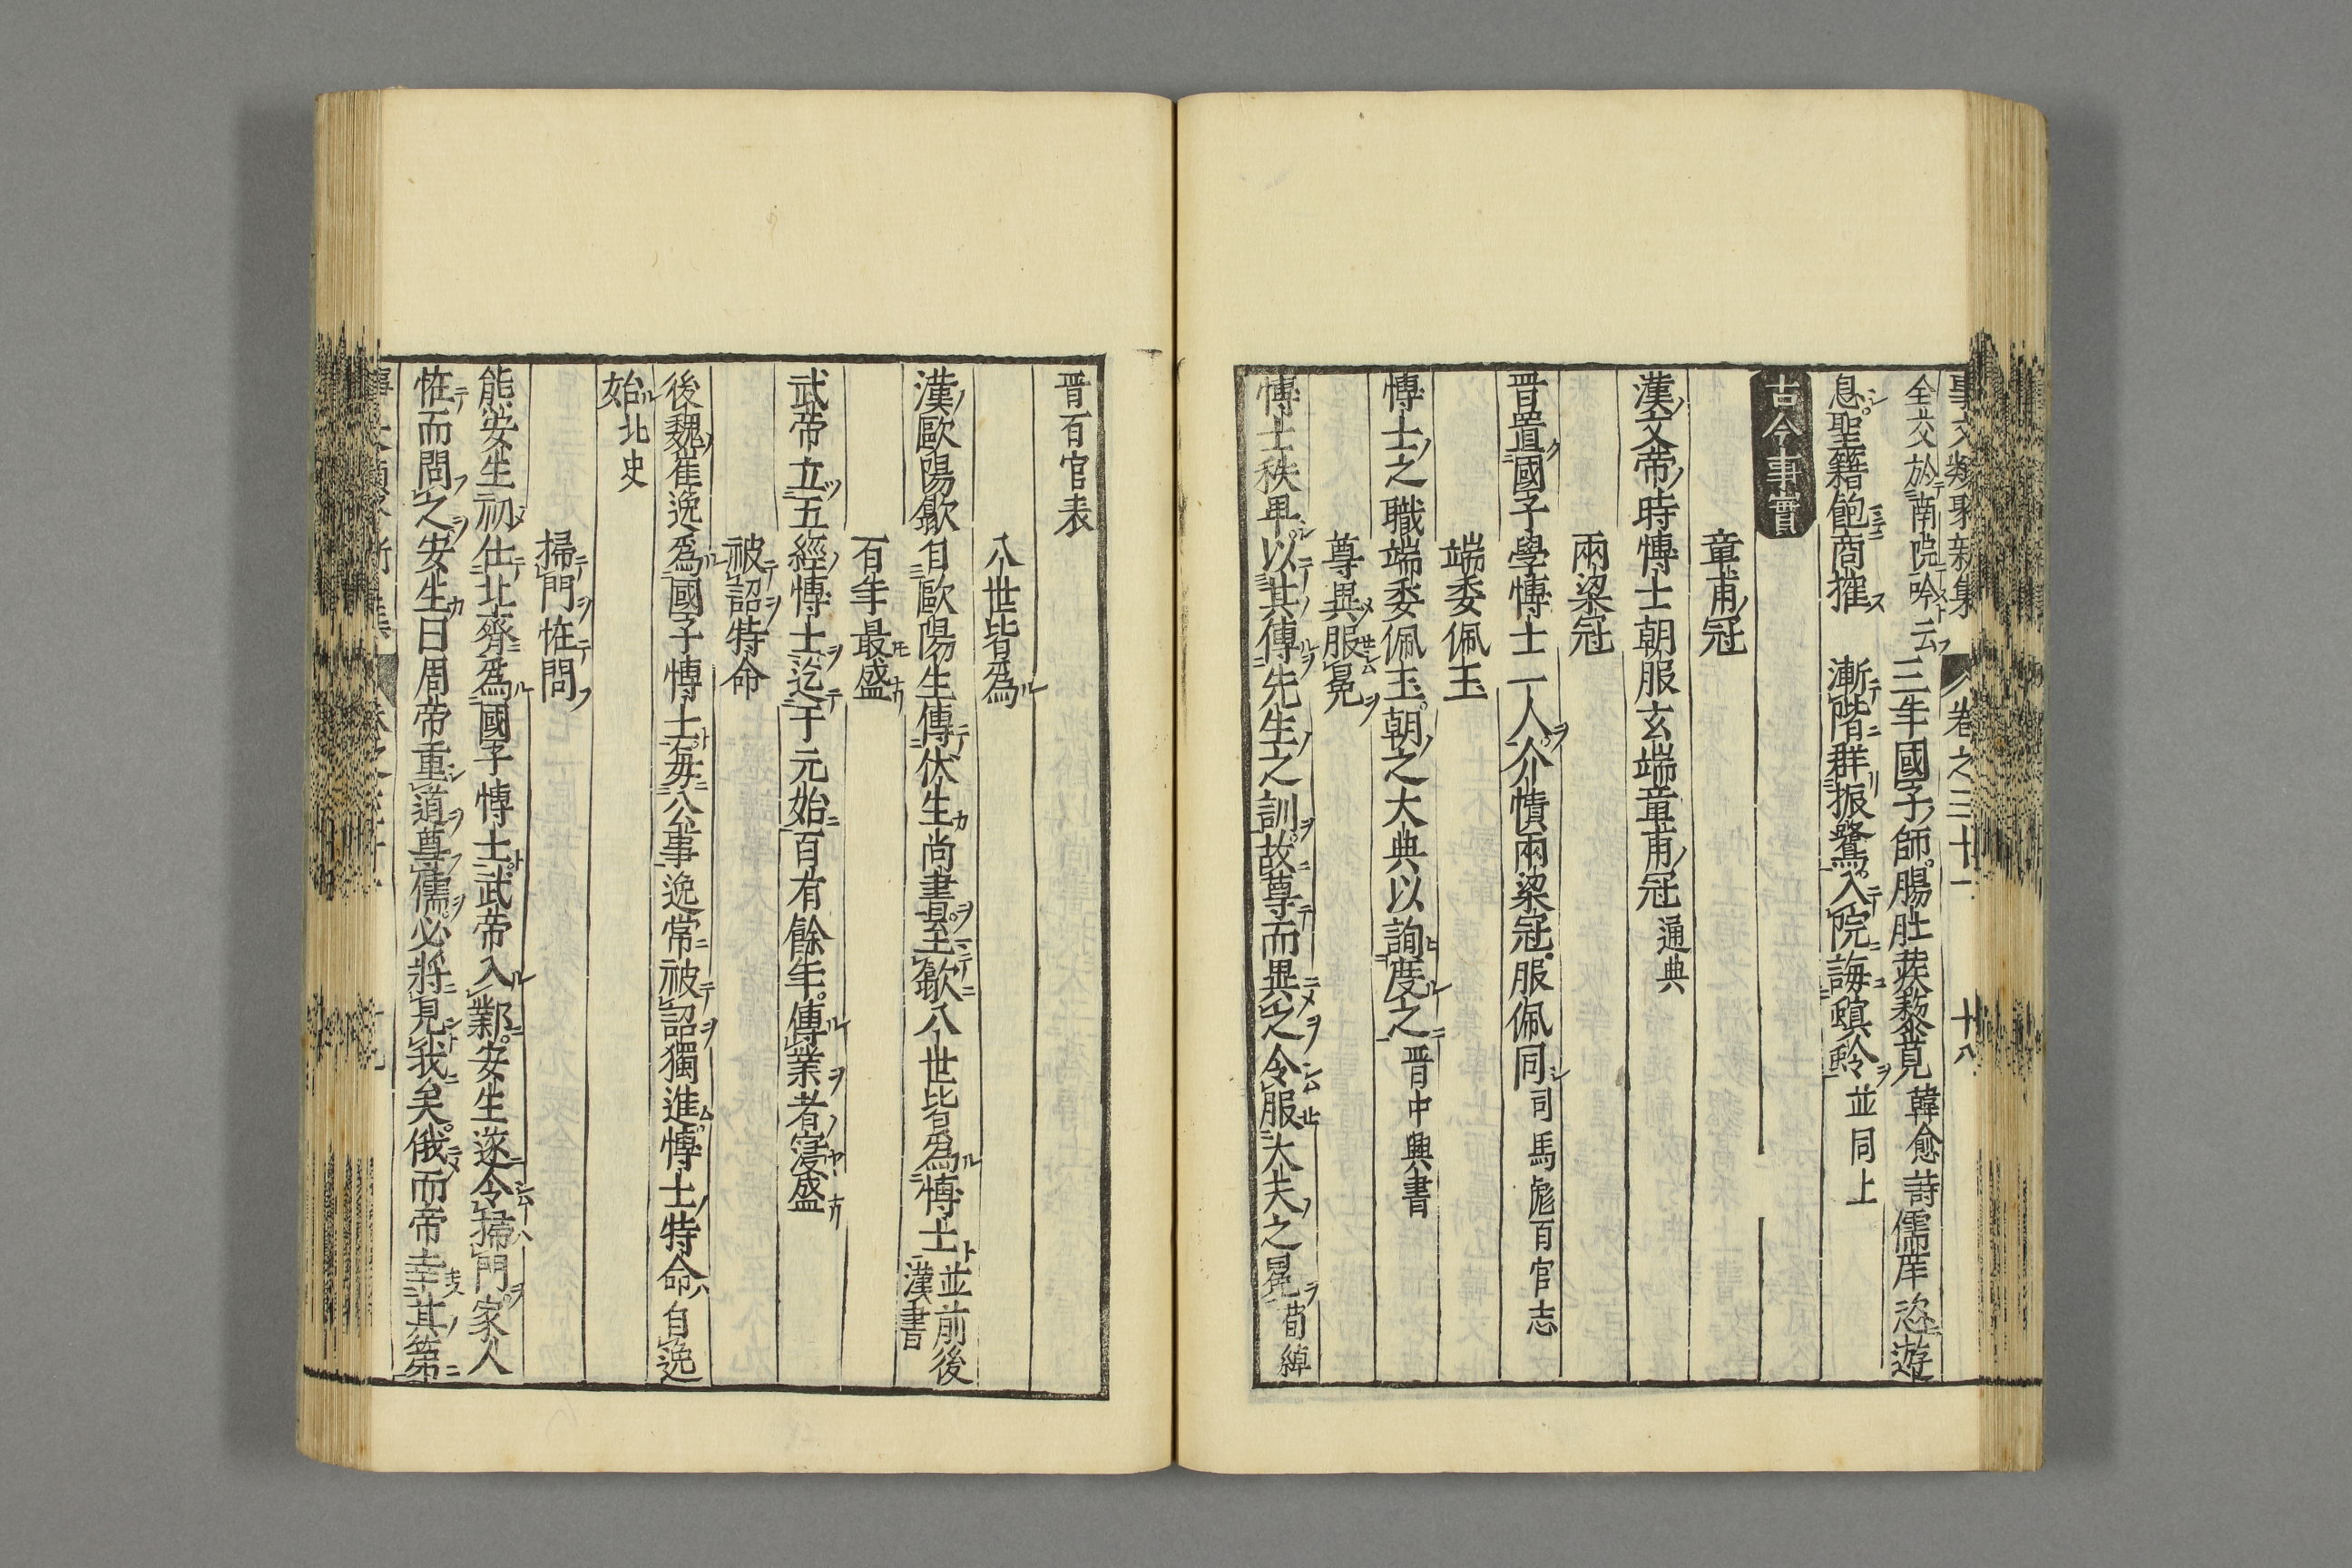 事文類聚新集 卷之三十一 十八
全交於南院吟云三年國子師腸肚蔾莧韓愈詩儒庠恣遊
息聖籍飽商搉 漸階群振鷺入院誨螟蛉並同上
古今事實
章甫冠
漢文帝時博士朝服玄端章甫冠通典
兩梁冠
晋置國子學博士一人介幘兩梁冠服佩同司馬彪百官志
端委佩玉
博士之職端委佩玉朝之大典以詢度之晋中興書
尊異服冕
博士秩卑以其傳先生之訓故尊而異之令服大夫之冕荀綽
晋百官表
八世皆為
漢歐陽歙自歐陽生傳伏生尚書至歙八世皆為博士並前後漢書
百年最盛
武帝立五經博士迄于元始百有餘年傳業者寖盛
被詔特命
後魏崔逸為國子博士每公事逸常被詔獨進博士特命自逸
始北史
掃門恠問
熊安生初仕北齊為國子博士武帝入鄴安生遂令掃門家人
恠而問之安生曰周帝重道尊儒必將見我矣俄而帝幸其第